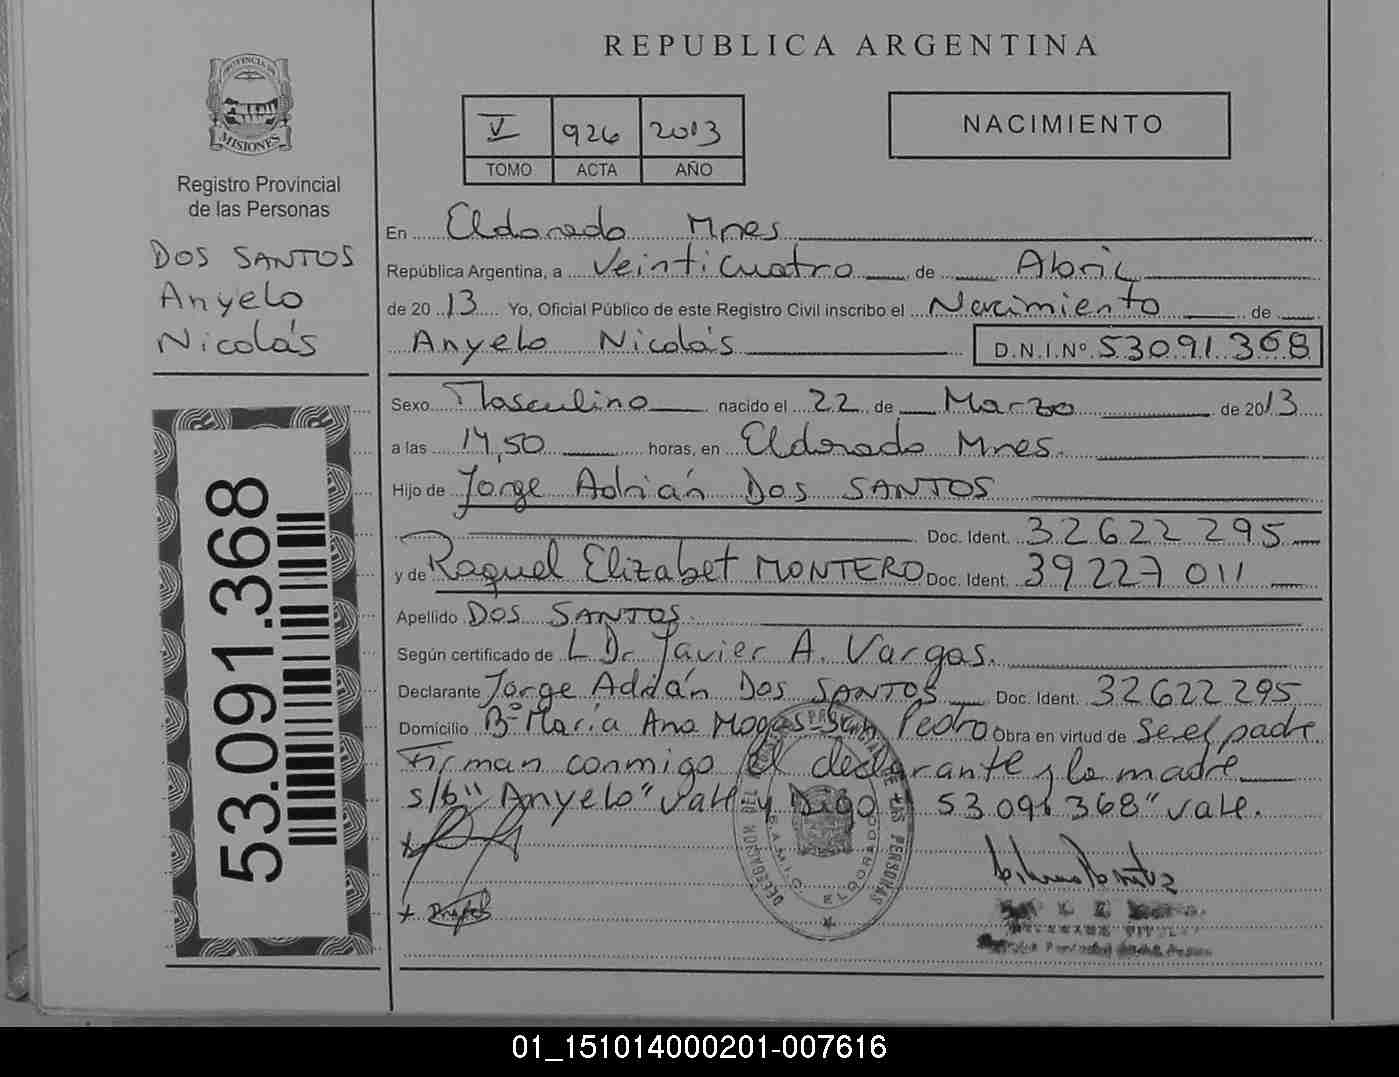 PROVINCIA DE
MISIONES
Registro Provincial
de las Personas
DOS SANTOS
Anyelo
Nicolás
53.091.368
REPUBLICA ARGENTINA
V 926 2013
TOMO ACTA AÑO
NACIMIENTO
En Eldorado Mnes
República Argentina, a Veinticuatro de Abril
de 2013 Yo, Oficial Público de este Registro Civil inscribo el Nacimiento de
Anyelo Nicolás D.N.I.Nº 53091.368
Sexo Masculino nacido el 22 de Marzo de 2013
a las 14,50 horas, en Eldorado Mnes.
Hijo de Jorge Adrián Dos SANTOS
Doc. Ident. 32622295
y de Raquel Elizabet MONTERO Doc. Ident. 39227011
Apellido Dos SANTOS.
Según certificado de L Dr Javier A. Vargas.
Declarante Jorge Adrián Dos SANTOS Doc. Ident. 32622295
Domicilio Bº María Ana Mogas San Pedro Obra en virtud de Ser el padre
Firman conmigo el declarante y la madre
s/b "Anyelo" vale y Digo 53.091.368" vale.
DELEGACION DEL REGISTRO PROVINCIAL DE LAS PERSONAS
S.A.M.I.C. ELDORADO
01_151014000201-007616